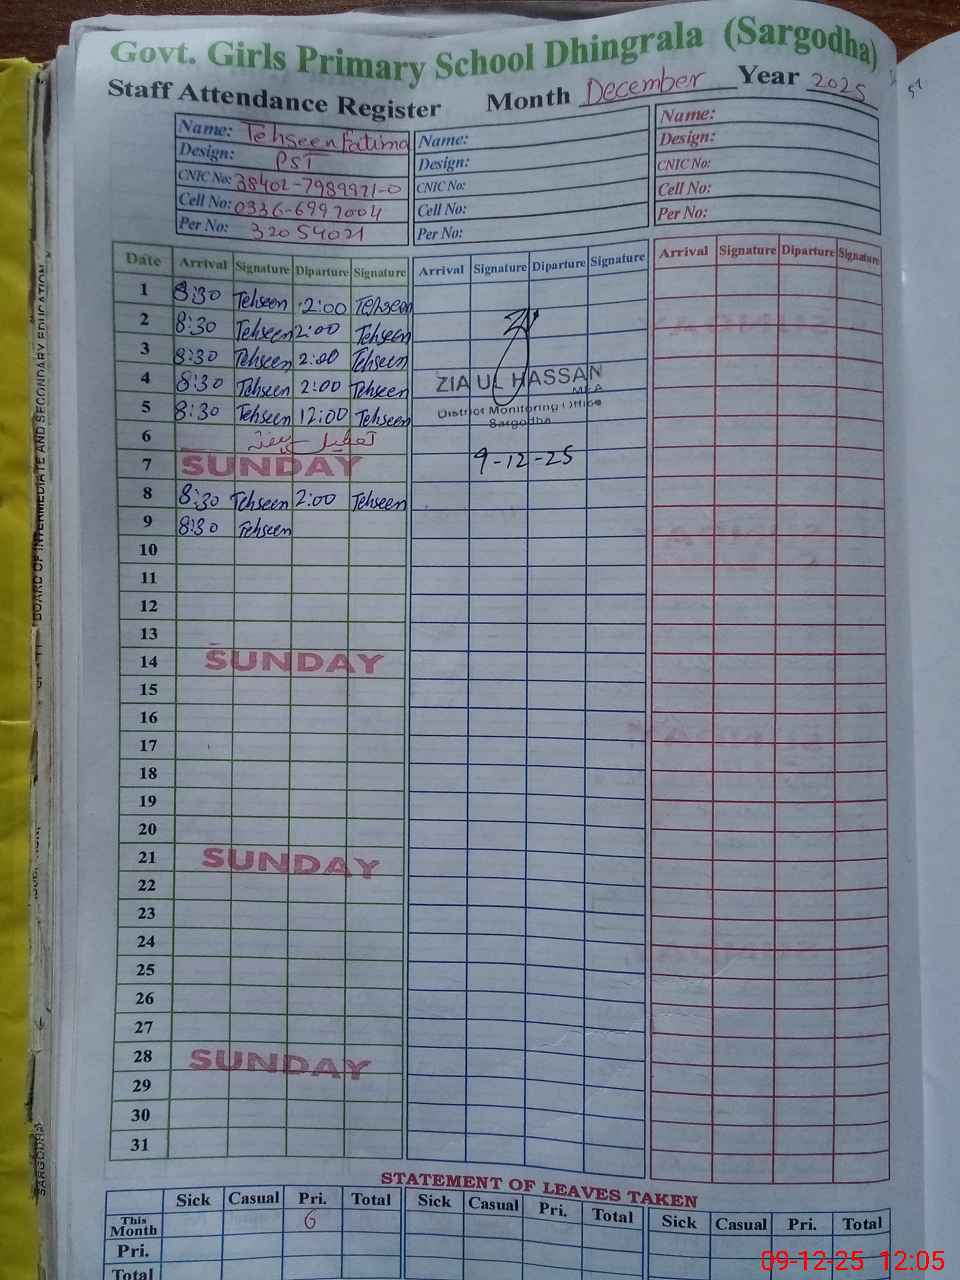 Govt. Girls Primary School Dhingrala (Sargodha)
Staff Attendance Register Month December Year 2025
Name: Tehseen Fatima
Design: PST
CNIC No: 38402-7989971-0
Cell No: 0336-6997004
Per No: 32054021
Name:
Design:
CNIC No:
Cell No:
Per No:
Name:
Design:
CNIC No:
Cell No:
Per No:
Date Arrival Signature Diparture Signature Arrival Signature Diparture Signature Arrival Signature Diparture Signature
1 8:30 Tehseen 2:00 Tehseen
2 8:30 Tehseen 2:00 Tehseen
3 8:30 Tehseen 2:00 Tehseen
4 8:30 Tehseen 2:00 Tehseen
5 8:30 Tehseen 12:00 Tehseen
ZIA UL HASSAN
MEA
District Monitoring Office
Sargodha
6
7 SUNDAY 9-12-25
8 8:30 Tehseen 2:00 Tehseen
9 8:30 Tehseen
10
11
12
13
14 SUNDAY
15
16
17
18
19
20
21 SUNDAY
22
23
24
25
26
27
28 SUNDAY
29
30
31
STATEMENT OF LEAVES TAKEN
Sick Casual Pri. Total Sick Casual Pri. Total Sick Casual Pri. Total
This Month 6
Pri.
Total
BOARD OF INTERMEDIATE AND SECONDARY EDUCATION
SARGODHA
09-12-25 12:05